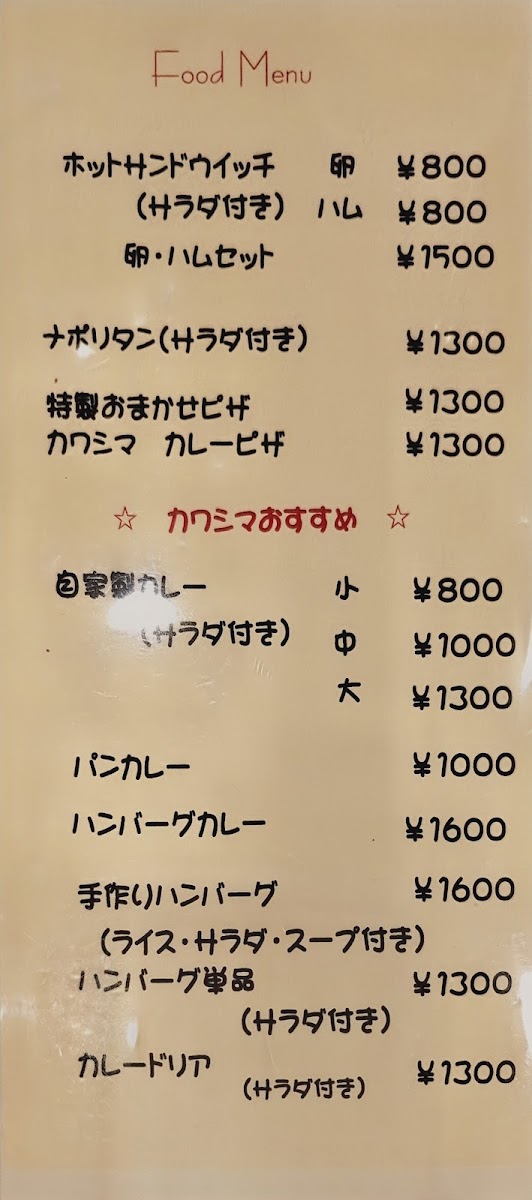 Food Menu
ホットサンドウイッチ 卵 ¥800
(サラダ付き) ハム ¥800
卵・ハムセット ¥1500
ナポリタン(サラダ付き) ¥1300
特製おまかせピザ ¥1300
カワシマ カレーピザ ¥1300
☆ カワシマおすすめ ☆
自家製カレー 小 ¥800
(サラダ付き) 中 ¥1000
大 ¥1300
パンカレー ¥1000
ハンバーグカレー ¥1600
手作りハンバーグ ¥1600
(ライス・サラダ・スープ付き)
ハンバーグ単品 ¥1300
(サラダ付き)
カレードリア ¥1300
(サラダ付き)